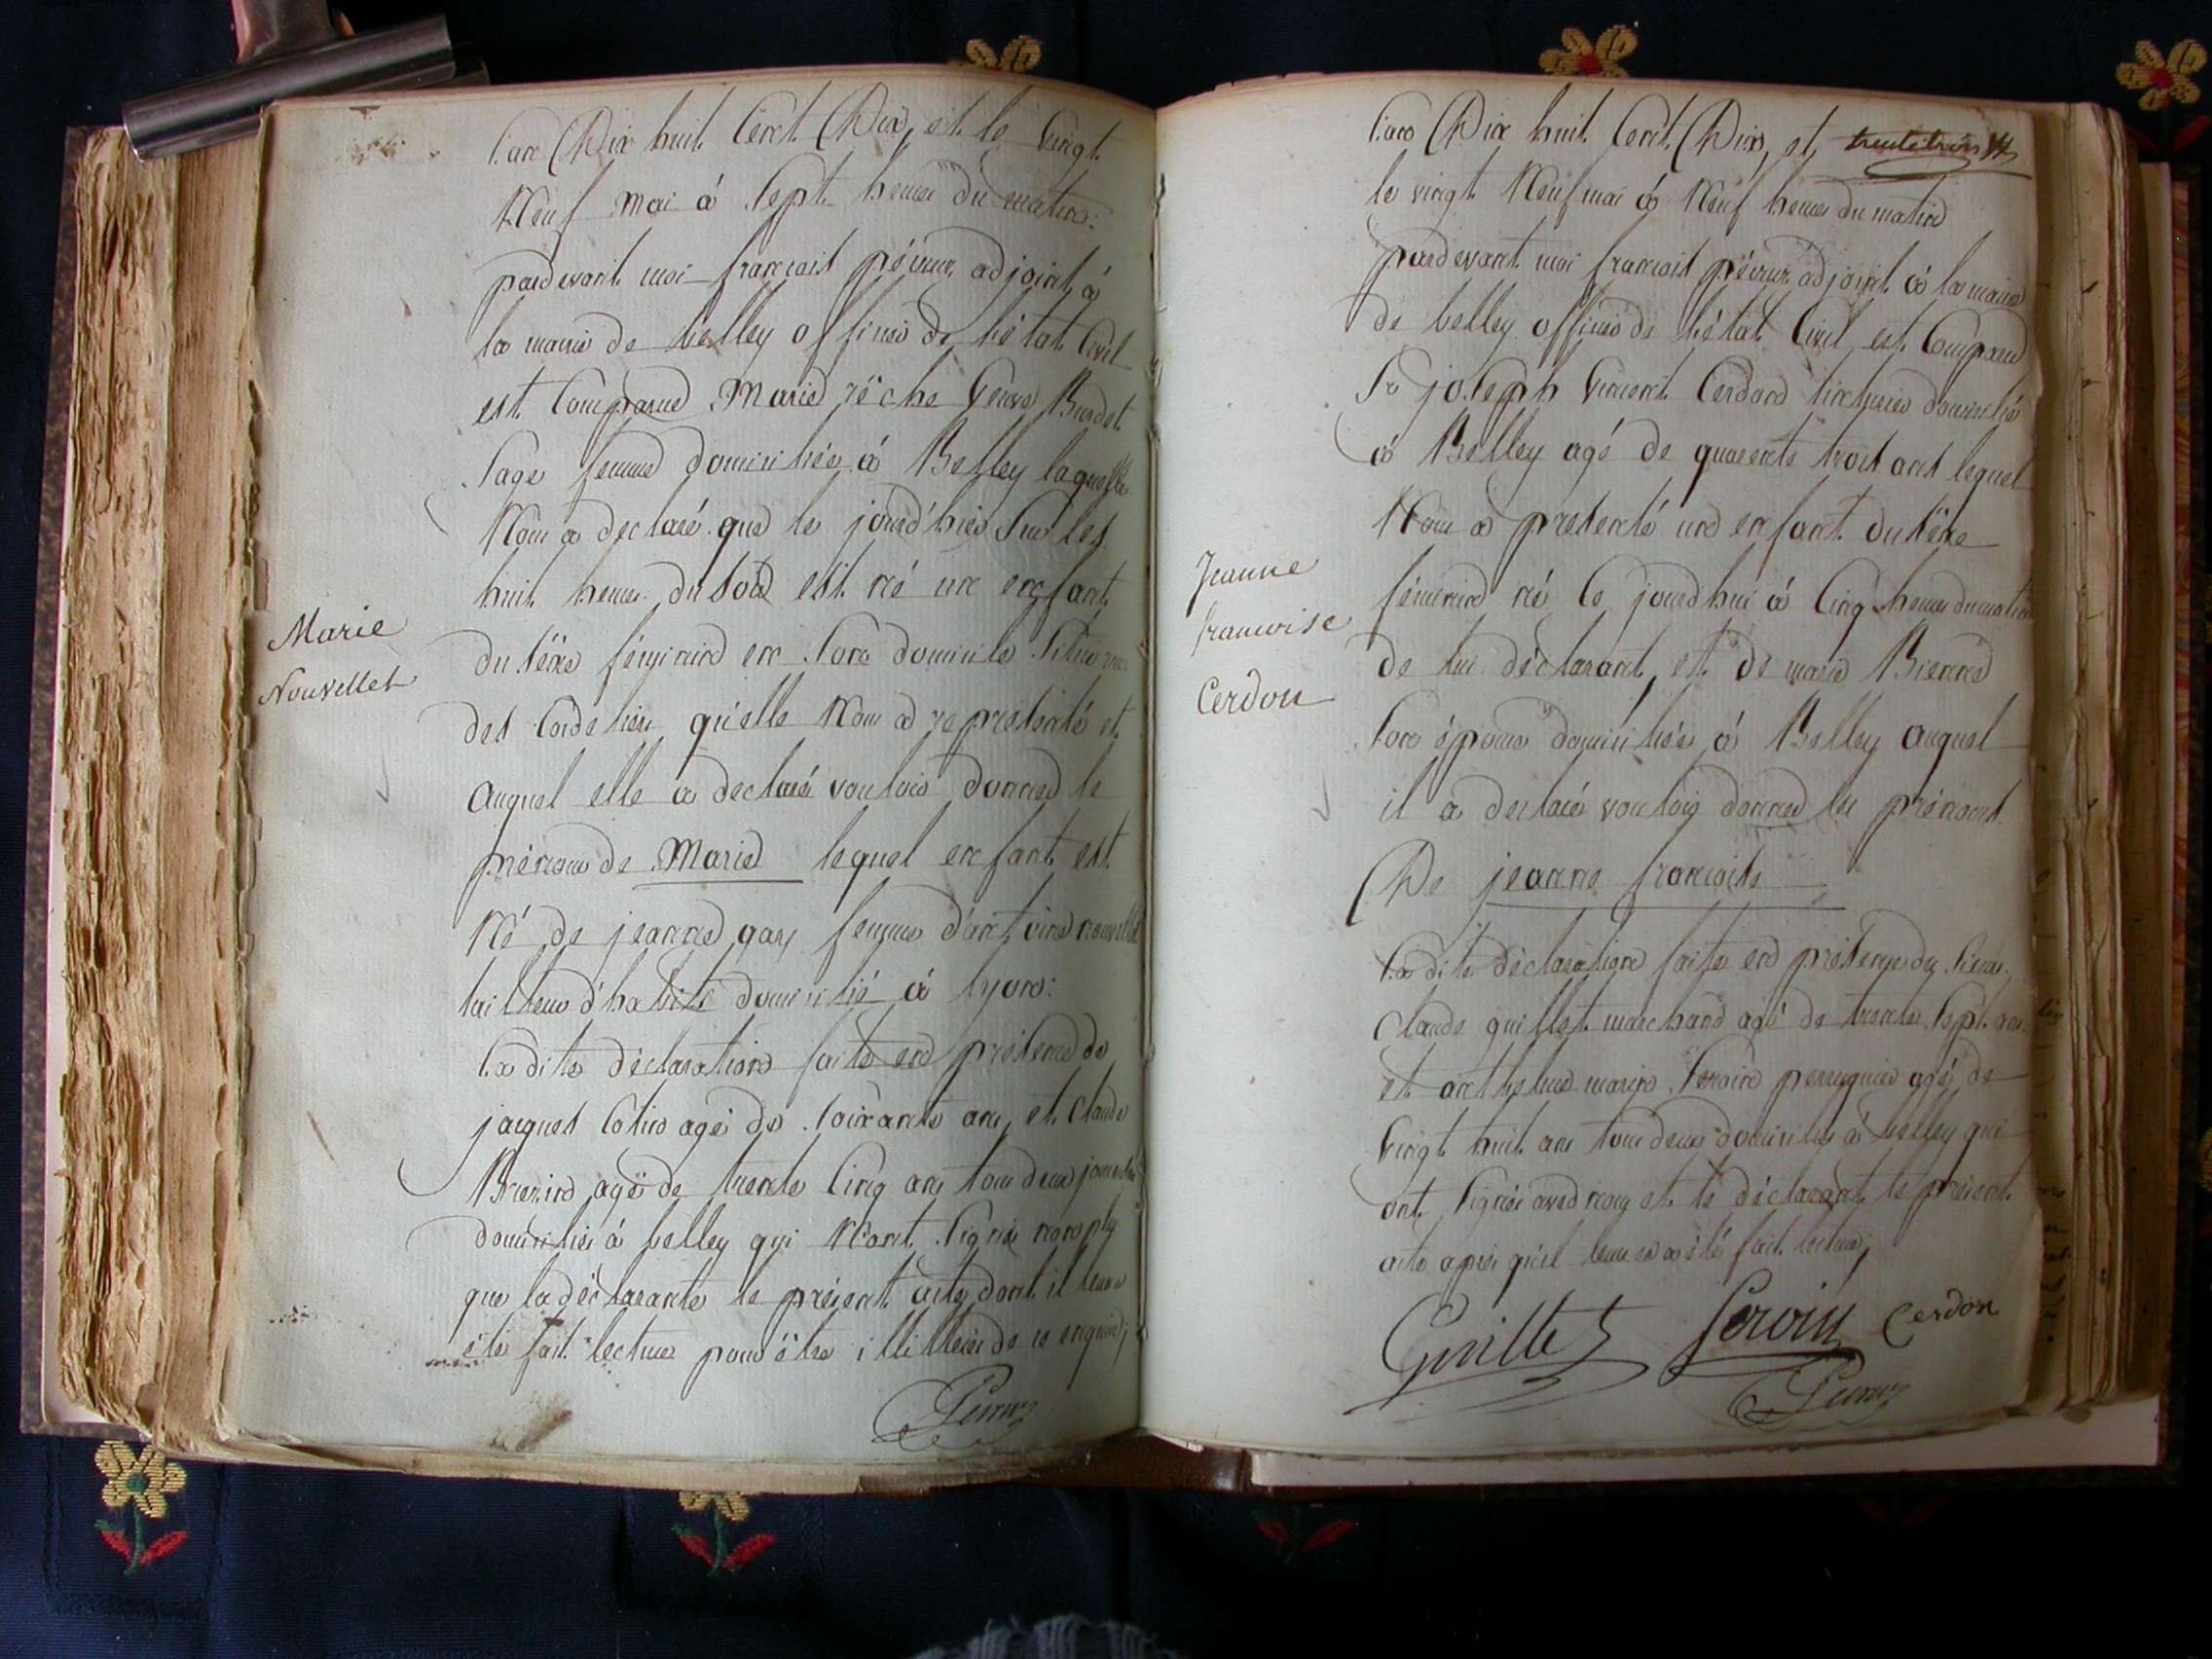 L'an Dix huit Cent Dix, et le Vingt
Neuf Mai à Sept heures du matin:
pardevant moi françois péveur adjoint à
la mairie de belley officier de l'état Civil
est Comparue Marie réche Veuve Burdet
Sage femme domiciliée à Belley laquelle
Nous a declaré que le jourd'hier Sur les
huit heures du soir est né un enfant
du séxe féminin en Son domicile Situé rue
des Cordeliers qu'elle Nous a représenté et
Auquel elle a declaré vouloir donner le
prénom de Marie lequel enfant est
Né de jeanne gay femme d'antoine nouvellet
tailleur d'habits domicilié à lyon:
La dite déclaration faite en présence de
jacques Cotin agé de Soixante ans, et Claude
agé de trente Cinq ans tous deux
domiciliés à belley qui N'ont Signé non plus
que la déclarante le présent acte dont il leur a
été fait lecture pour être illitérés de ce enquis;
Marie
Nouvellet
L'an Dix huit Cent Dix, et trente trois
le vingt Neuf mai à Neuf heures du matin
pardevant moi françois péveur adjoint à la mairie
de belley officier de l'état Civil est Comparu
Sr joseph Vincent Cerdon domicilié
à Belley agé de quarente trois ans lequel
Nous a presenté un enfant du séxe
féminin né le jourd'hui à Cinq heures du matin
de lui déclarant, et de marie
Son épouse domiciliée à Belley auquel
il a declaré vouloir donner les prénoms
De jeanne françoise
La dite déclaration faite en présence des Sieurs
Claude guillet marchand agé de trente Sept ans
et anthelme marin perruquier agé de
Vingt huit ans tous deux domiciliés à belley qui
ont Signés avec nous et le déclarant le présent
acte après qu'il leur en a été fait lecture;
Jeanne
francoise
Cerdon
Guillet Cerdon